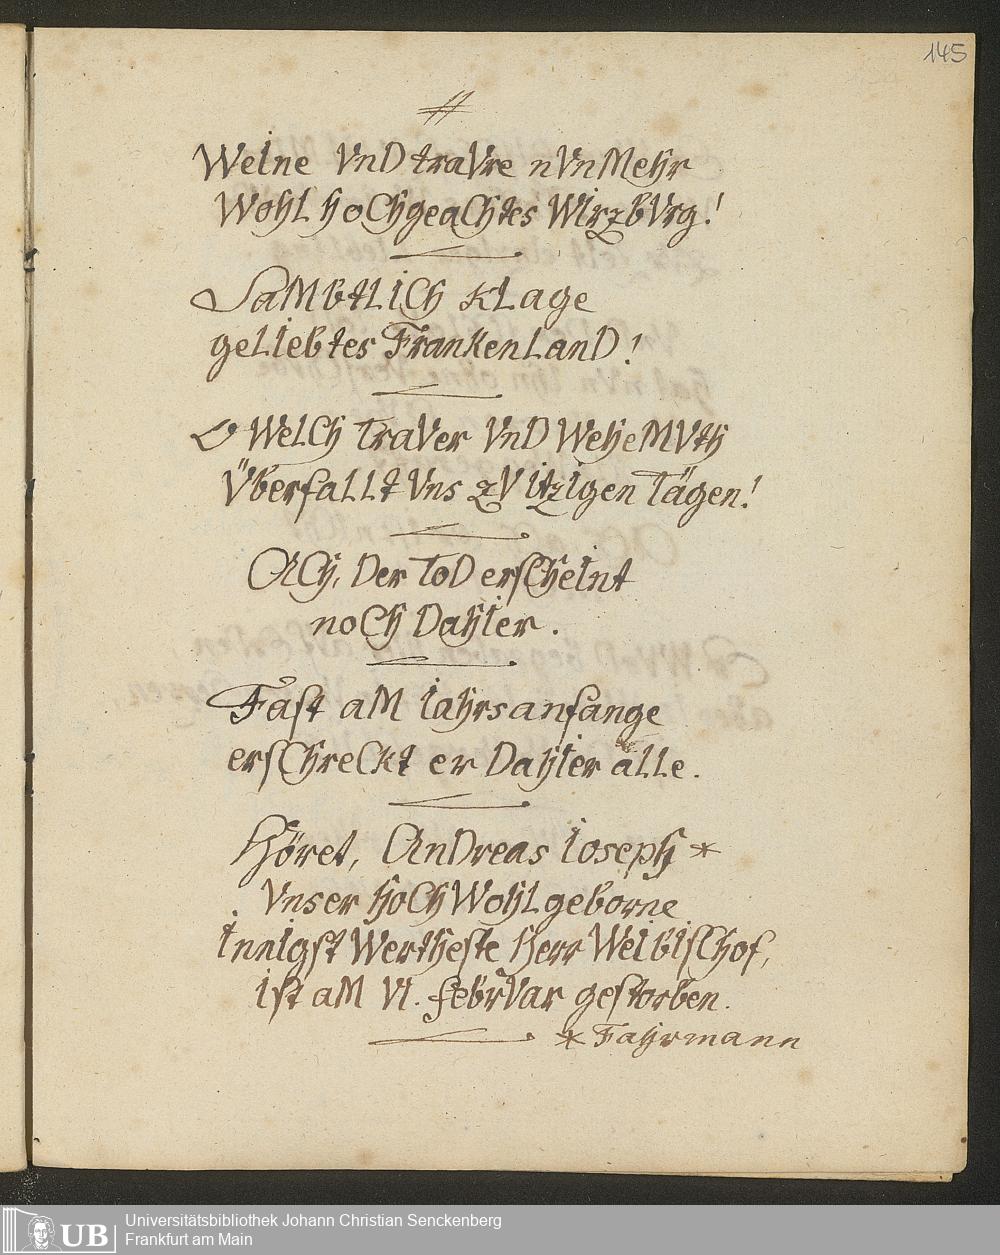 145
WeIne VnD traVre nVnMehr
WohL hoChgeaChtes WIrzbVrg!
SaMbtLiCh kLage
geLIebtes FrankenLanD!
O WeLCh TraVer VnD WeheMVth
ÜberfaLLt Vns zV itzIgen Tägen!
ACh, Der ToD ersCheInt
noCh DahIer.
Fast aM Iahrsanfange
ersChreCkt er DahIer aLLe.
Höret, AnDreas Ioseph *
Vnser hoChWohLgeborne
InnIgst Wertheste Herr WeIbIsChof,
Ist aM VI. febrVar gestorben.
* Fahrmann
UB
Universitätsbibliothek Johann Christian Senckenberg
Frankfurt am Main